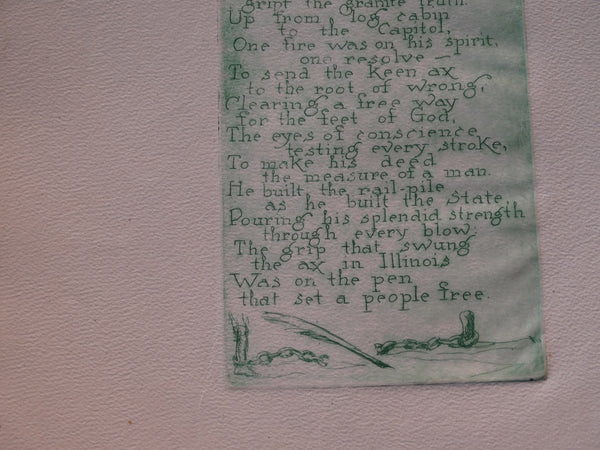 gript the granite truth.
Up from log cabin
to the Capitol,
One fire was on his spirit,
one resolve —
To send the keen ax
to the root of wrong,
Clearing a free way
for the feet of God,
The eyes of conscience
testing every stroke,
To make his deed
the measure of a man.
He built the rail-pile
as he built the State,
Pouring his splendid strength
through every blow:
The grip that swung
the ax in Illinois
Was on the pen
that set a people free.